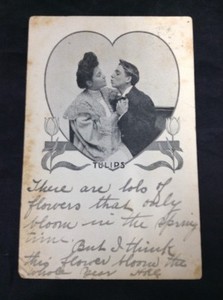 TULIPS
There are lots of
flowers that only
bloom in the Spring
time
But I think
this flower blooms the
whole year